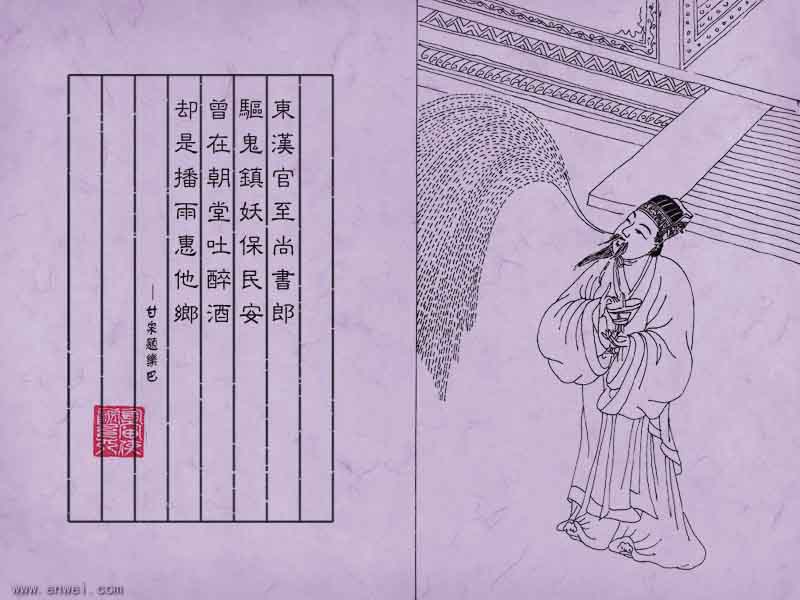 東漢官至尚書郎
驅鬼鎮妖保民安
曾在朝堂吐醉酒
却是播雨惠他鄉
—甘宋題欒巴
www.enwei.com